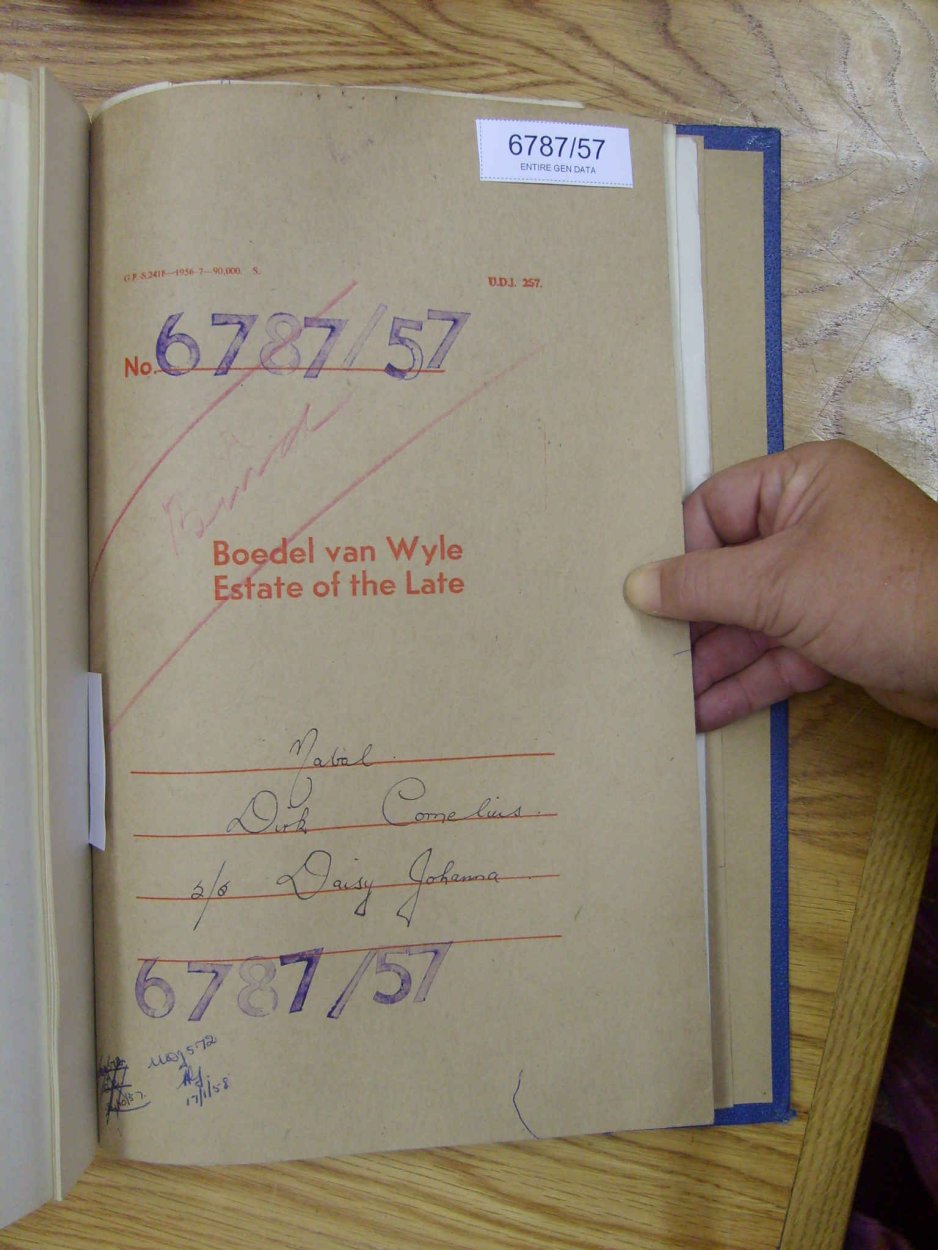 6787/57
ENTIRE GEN DATA
G.P.-S.2418—1956-7—90,000. S.
U.D.J. 257.
No. 6787/57
Boedel van Wyle
Estate of the Late
Nabal.
Dirk Cornelius.
s/s Daisy Johanna
6787/57
17/1/58